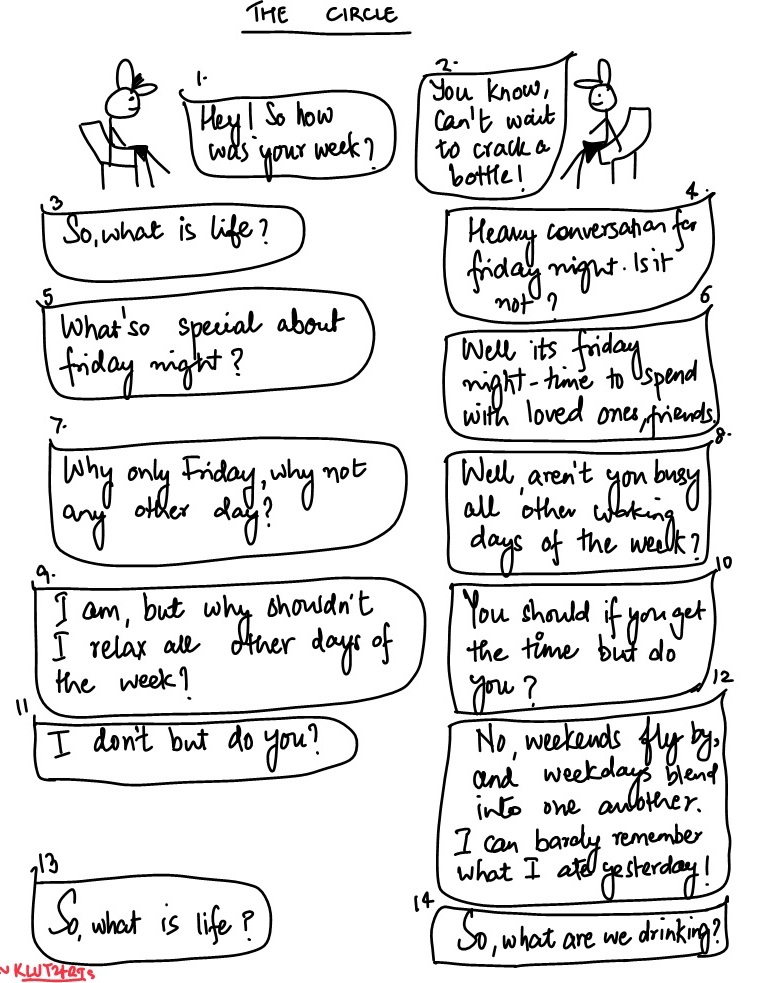 THE CIRCLE
1.
Hey! So how
was your week?
2.
You know,
Can't wait
to crack a
bottle!
3
So, what is life?
4.
Heavy conversation for
friday night. Is it
not?
5
What's so special about
friday night?
6
Well its friday
night-time to spend
with loved ones, friends.
7.
Why only Friday, why not
any other day?
8.
Well, aren't you busy
all other working
days of the week?
9.
I am, but why shouldn't
I relax all other days of
the week?
10
You should if you get
the time but do
you?
11
I don't but do you?
12
No, weekends fly by,
and weekdays blend
into one another.
I can barely remember
what I ate yesterday!
13
So, what is life?
14
So, what are we drinking?